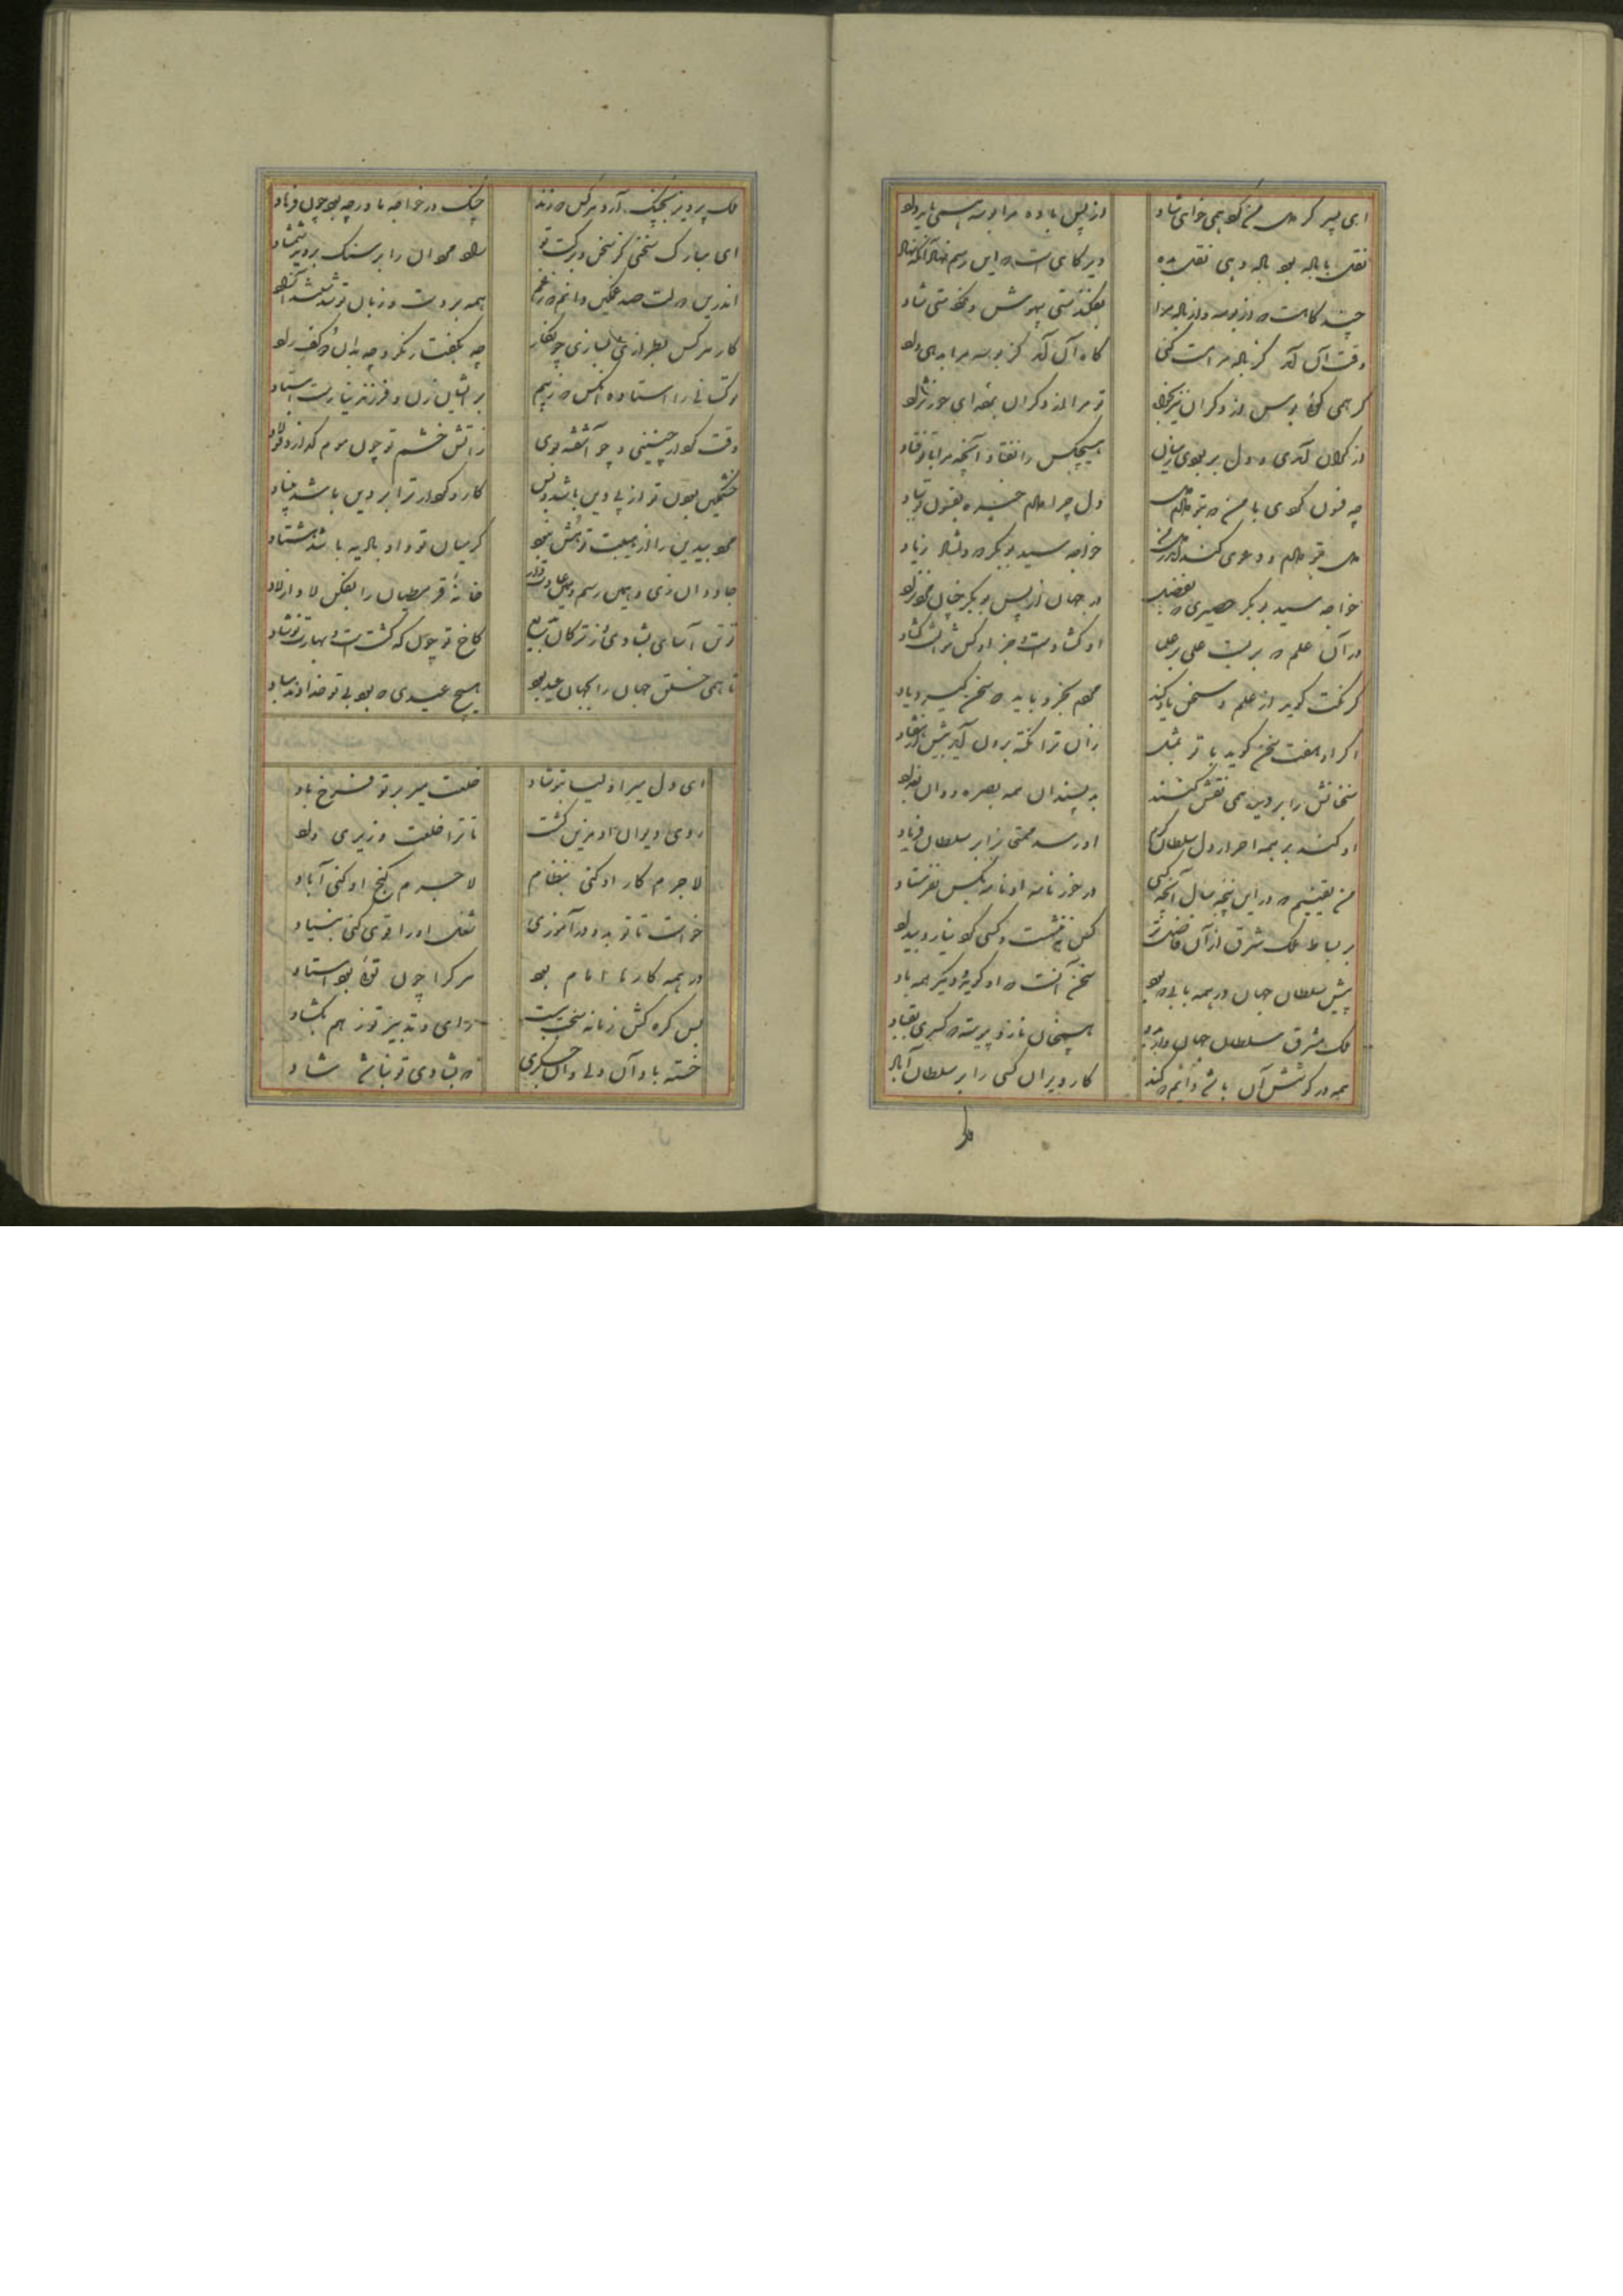 ای پسر گر دل من کرد همی خواهی شاد از پس باده مرا بوسه همی باید داد
نقل با باده بود باده دهی نقل بده دیر گاهی است که این رسم نهاد آنکه نهاد
چند گاهست که از بوسه و از باده مرا نفکندستی بیهوش و نکردستی شاد
وقت آن آمد کز باده مرا مست کنی گاه آن آمد کز بوسه مرا بدهی داد
گر همی گوئی بوس از دگران نیز بخواه تو مرا از دگران ای حور نژاد
از کران آمدی و دل بربودی ز میان هیچکس را نفتاد آنچه مرا با تو فتاد
چه فسون کردی با من که بتو دادم دل دل چرا دادم خیره بفسون تو بباد
دل بتو دادم و دعوی کند اندر دل من خواجه سید بوبکر که دلشاد زیاد
خواجه سید بوبکر حصیری که بفضل در جهان از پس بوبکر چنان مرد نزاد
در آن علم که بربست علی بر علما او گشادست و جز او کس نتوانست گشاد
گر نکت گوید از علم و سخن یاد کند مردم بخرد باید که سخن گیرد یاد
اگر او هفت سخن گوید با تو بمثل زان ترا نکته برون آید بیش از هفتاد
سخنانش را بر دیده همی نقش کنند به پسندان همه بصره و آن بغداد
او کند بر همه احرار دل سلطان گرم او رسد ممتحنی را بر سلطان فریاد
من یقینم که در این پنجه سال آنچه کسی در خور نامه او نامه بکس نفرستاد
بر بساط ملک شرق از آن فاضلتر کس ننشست و کسی کو نیارد بیداد
پیش سلطان جهان در همه بابی که بود سخن آنست که او گوید و دیگر همه باد
ملک مشرق سلطان جهان داند به هیچنان نازد پیوسته که کسری بقباد
همه در کوشش آن باشد دائم که کند کار ویران کسی را بر سلطان آباد
ملک
ملک پرویز بچنگ آرد هر کس که زند چنگ در خواجه ما ور چه بود چون فرهاد
ای مبارک سخنی کز سخن و برکت تو سرو مردان را بر سنگ بروید شمشاد
اندرین دولت صد غمگین دانم که ز غم همه بر دست و زبان تو شدستند آزاد
کار هر کس بطرازی و بسازی چو نگار چه بگفتار نکو و چه بدان کف راد
و کسانی را استاده کس که ز بیم بر ایشان زن و فرزند نیارست استاد
وقت کردار چنینی و چو آشفته بوی زآتش خشم تو چون موم گدازد فولاد
خشمگین بودن تو از پی دین باشد و بس کار و کردار ترا بر دین باشد بنیاد
مرد بیدین را از هیبت تو هش برمد گر میان تو و او بادیه باشد هشتاد
جاودان زی و همین رسم و همین عادت دار خانه قرمطیان را بفکن لاد از لاد
تو تن آسای بشادی و ز ترکان بدیع کاخ تو چون که گشتست و بهارت نوشاد
تا همی خلق جهان را بجهان عید بود هیچ عیدی که بود بی تو خداوند مباد
ای دل میر اولیا بتو شاد خلعت میر بر تو فرخ باد
روی دیوان او مزین گشت تا ترا خلعت وزیری داد
لاجرم کار او کنی بنظام لاجرم گنج او کنی آباد
خواست تا تو بدو در آموزی شغل او را قوی کنی بنیاد
در همه کارها امام بود هر کرا چون توئی بود استاد
بس گره کش زمانه سخت ببست رای و تدبیر تو ز هم بگشاد
خسته باد آن دلی و آن جگری که بشادی تو نباشد شاد